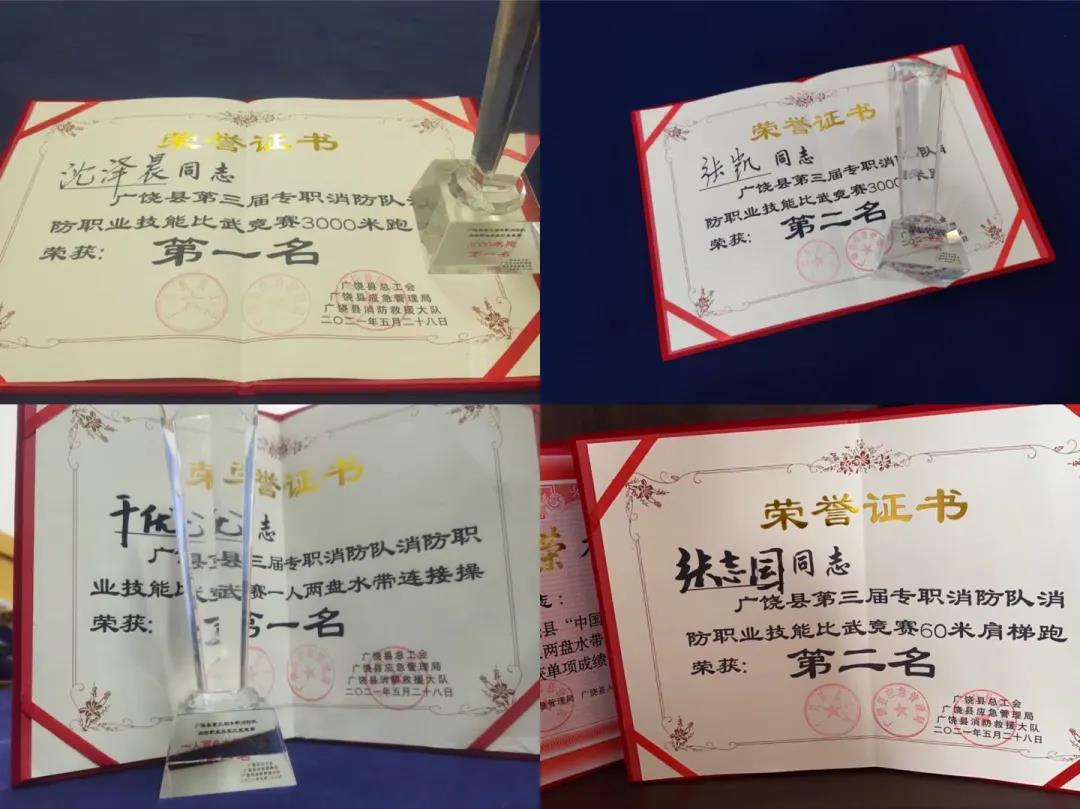 荣誉证书
沈泽晨同志
广饶县第三届专职消防队消
防职业技能比武竞赛3000米跑
荣获：第一名
广饶县总工会
广饶县应急管理局
广饶县消防救援大队
二〇二一年五月二十八日
3000米跑
第一名
荣誉证书
张凯同志
广饶县第三届专职消防队
防职业技能比武竞赛3000米跑
荣获：第二名
荣誉证书
同志
广饶县第三届专职消防队消防职
业技能比武 赛一人两盘水带连接操
荣获：第一名
广饶县总工会
广饶县应急管理局
广饶县消防救援大队
二〇二一年五月二十八日
广饶县第三届专职消防队
消防职业技能比武竞赛
荣
县“中国
两盘水带
获单项成绩
急管理局 广饶县人
荣誉证书
张志国同志
广饶县第三届专职消防队消
防职业技能比武竞赛60米肩梯跑
荣获：第二名
广饶县总工会
广饶县应急管理局
广饶县消防救援大队
二〇二一年五月二十八日